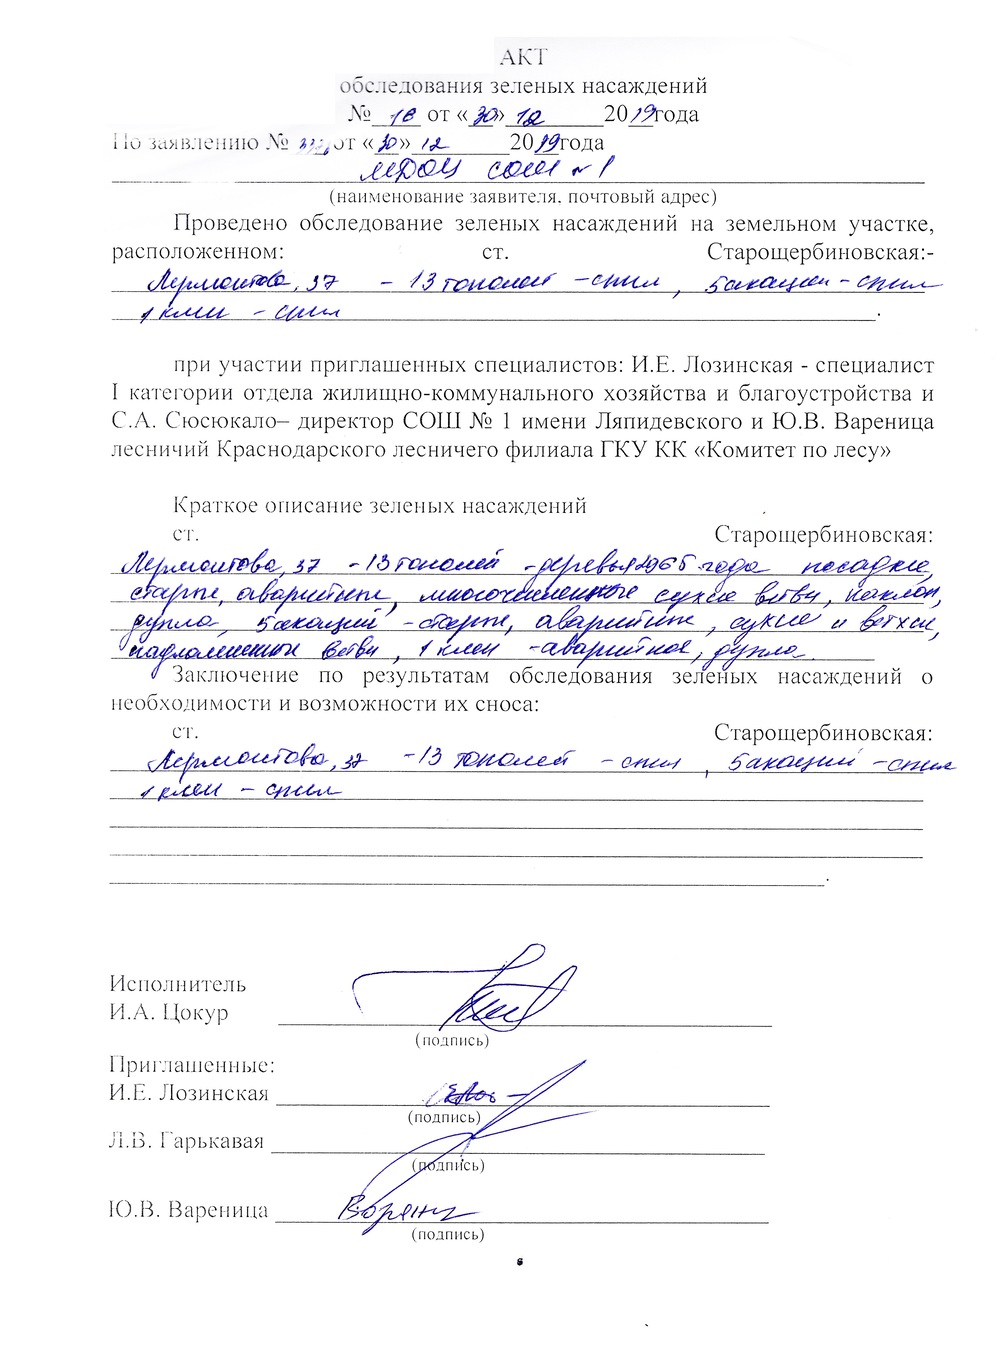 АКТ
обследования зеленых насаждений
№ 16 от «30» 12 2019года
По заявлению № от «30» 12 2019года
МДОЦ СОШ №1
(наименование заявителя, почтовый адрес)
Проведено обследование зеленых насаждений на земельном участке,
расположенном: ст. Старощербиновская:-
Лермонтова, 37 - 13 тополей - спил, 5 акации - спил
1 клен - спил.
при участии приглашенных специалистов: И.Е. Лозинская - специалист
I категории отдела жилищно-коммунального хозяйства и благоустройства и
С.А. Сюсюкало– директор СОШ № 1 имени Ляпидевского и Ю.В. Вареница
лесничий Краснодарского лесничего филиала ГКУ КК «Комитет по лесу»
Краткое описание зеленых насаждений
ст. Старощербиновская:
Лермонтова, 37 - 13 тополей - деревья 1965 года посадки,
старые, аварийные, многочисленные сухие ветви, наклон,
дупла, 5 акаций - старые, аварийные, сухие и ветхие,
надломленные ветви, 1 клен - аварийное, дупла.
Заключение по результатам обследования зеленых насаждений о
необходимости и возможности их сноса:
ст. Старощербиновская:
Лермонтова, 37 - 13 тополей - спил, 5 акаций - спил
1 клен - спил
Исполнитель
И.А. Цокур
(подпись)
Приглашенные:
И.Е. Лозинская
(подпись)
Л.В. Гарькавая
(подпись)
Ю.В. Вареница
(подпись)